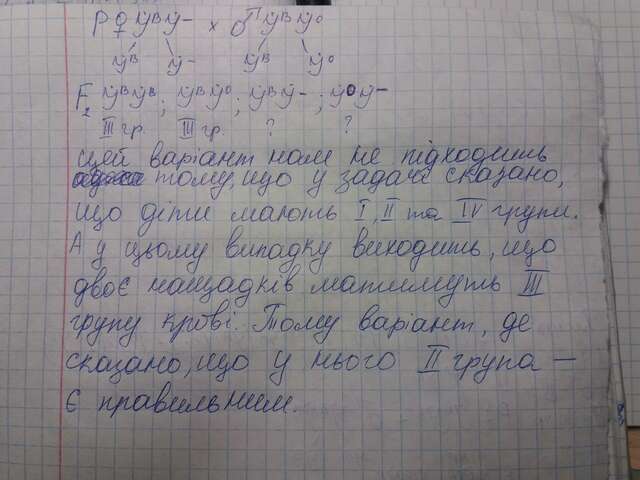 P ♀ IᴮI- × ♂ IᴮIᴼ
Iᴮ I- Iᴮ Iᴼ
F₂ IᴮIᴮ; IᴮIᴼ; IᴮI-; IᴼI-
III гр. III гр. ? ?
Цей варіант нам не підходить
тому, що у задачі сказано,
що діти мають I, II та IV групи.
А у цьому випадку виходить, що
двоє нащадків матимуть III
групу крові. Тому варіант, де
сказано, що у нього II група —
є правильним.